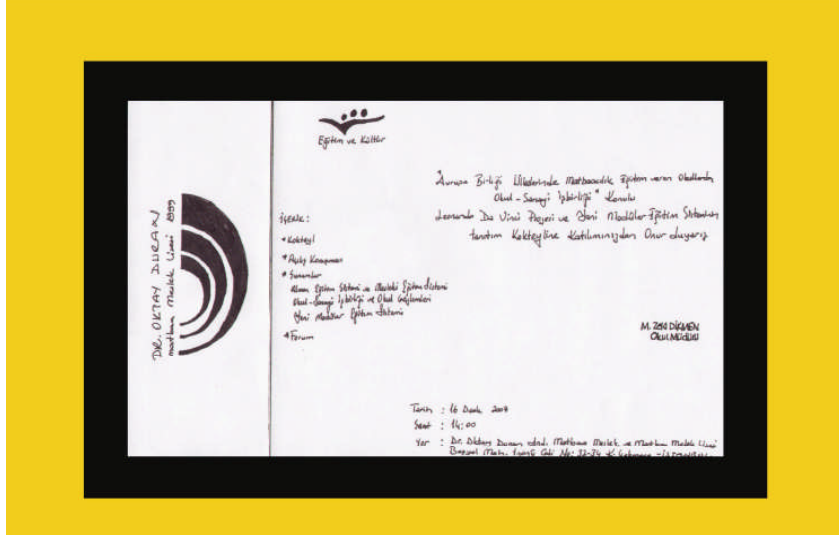 DR. OKTAY DURAN
matbaa Meslek Lisesi 1999
Eğitim ve Kültür
"Avrupa Birliği Ülkelerinde Matbaacılık Eğitim veren Okullarda
Okul-Sanayi İşbirliği" Konulu
Leonardo Da Vinci Projesi ve Yeni Modüler Eğitim Sisteminin
tanıtım Kokteyline Katılımınızdan Onur duyarız
M. ZEKİ DİKMEN
OKUL MÜDÜRÜ
İÇERİK:
* Kokteyl
* Açılış Konuşması
* Sunumlar
Alman Eğitim Sistemi ve Mesleki Eğitim Sistemi
Okul-Sanayi İşbirliği ve Okul
Yeni Modüler Eğitim Sistemi
* Forum
Tarih : 16 Aralık
Saat : 14:00
Yer : Dr. Oktay Duran And. Matbaa Meslek ve Matbaa Meslek Lisesi
Cad. No: 32-34